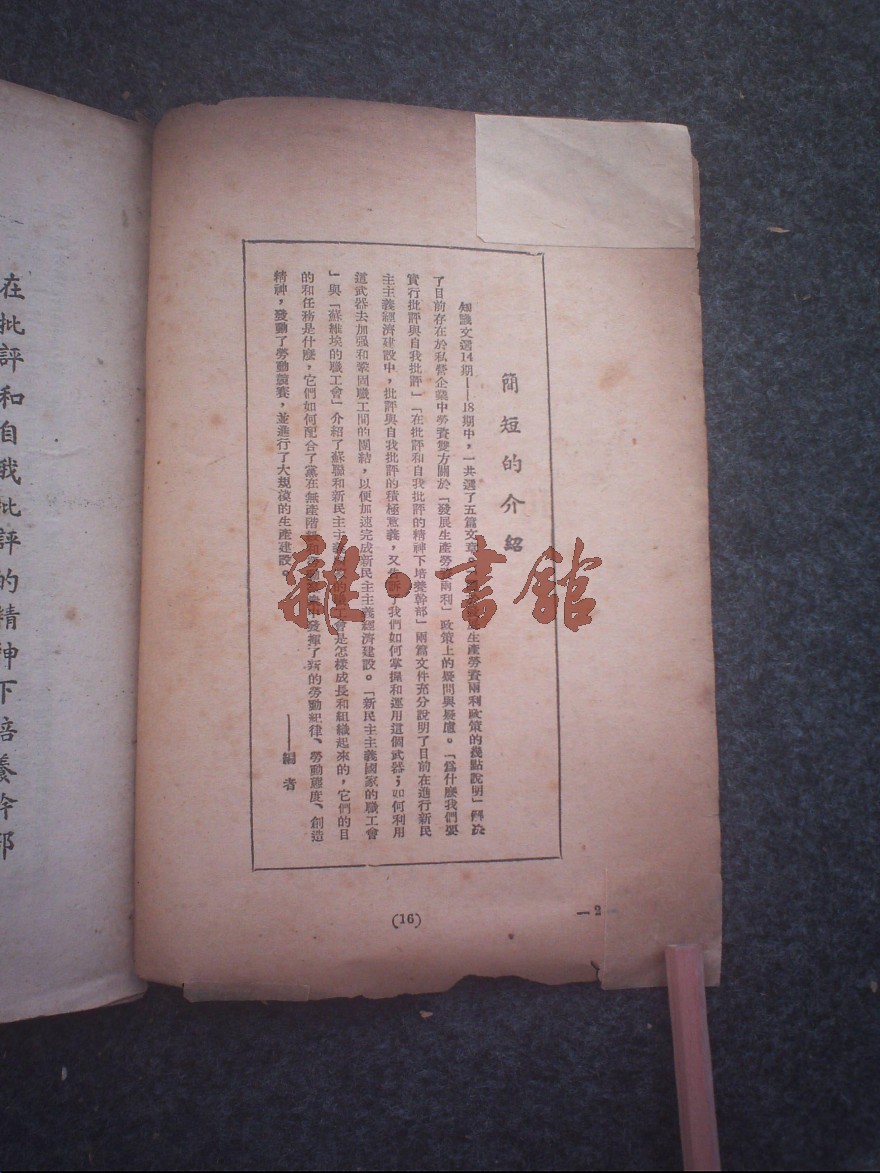 簡短的介紹
知識文選14期——18期中，一共選了五篇文章。生產勞資兩利政策的幾點說明」解決
了目前存在於私營企業中勞資雙方關於「發展生產勞資兩利」政策上的疑問與疑慮。「爲什麼我們要
實行批評與自我批評」「在批評和自我批評的精神下培養幹部」兩篇文件充分說明了目前在進行新民
主主義經濟建設中，批評與自我批評的積極意義，又告訴了我們如何掌握和運用這個武器；如何利用
道武器去加强和鞏固職工間的團結，以便加速完成新民主主義經濟建設。「新民主主義國家的職工會
」與「蘇維埃的職工會」介紹了蘇聯和新民主主義國家的職工會是怎樣成長和組織起來的，它們的目
的和任務是什麼，它們如何配合了黨在無產階發揮了新的勞動紀律、勞動態度、創造
精神，發動了勞動競賽，並進行了大規模的生產建設。
——編者
(16)
—2
在批評和自我批評的精神下培養幹部
雜·書館